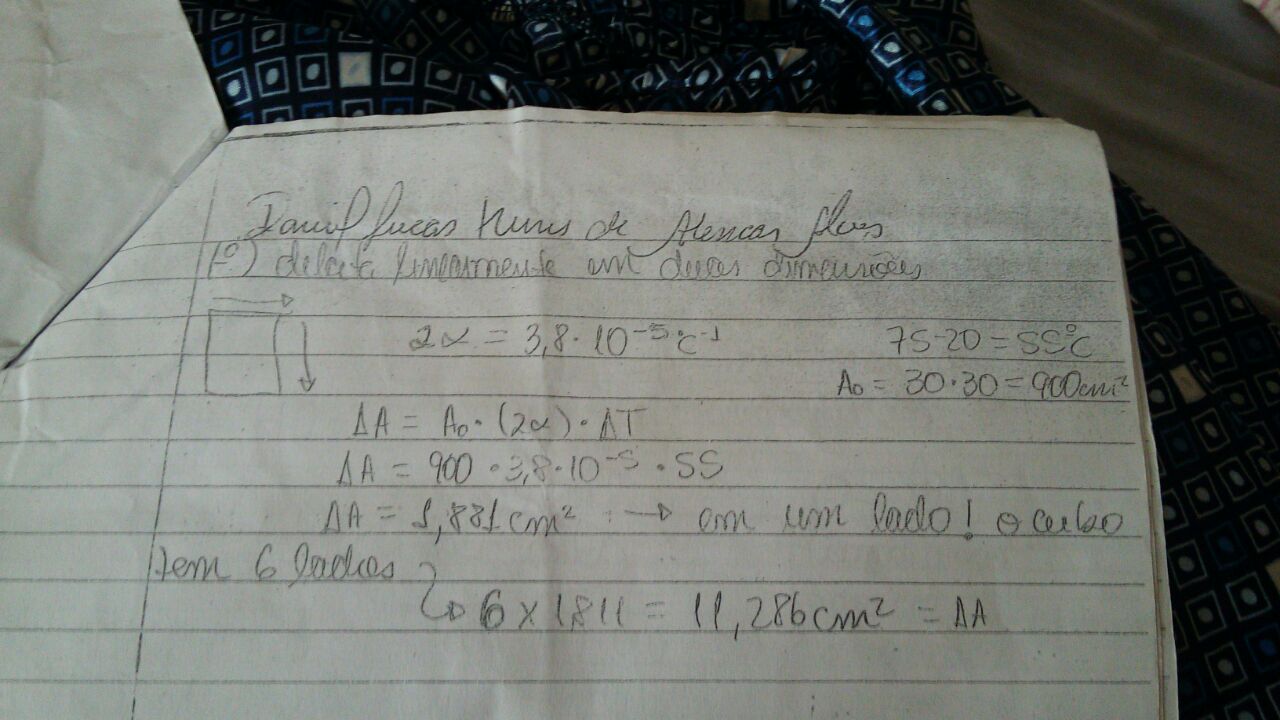 Daniel Lucas Nunes de Alencar Alves
1º) dilata linearmente em duas dimensões
2α = 3,8·10⁻⁵ °C⁻¹ 75-20 = 55°C
A₀ = 30·30 = 900cm²
ΔA = A₀·(2α)·ΔT
ΔA = 900·3,8·10⁻⁵·55
ΔA = 1,881cm² → em um lado! o cubo
tem 6 lados
↳ 6 x 1,811 = 11,286cm² = ΔA